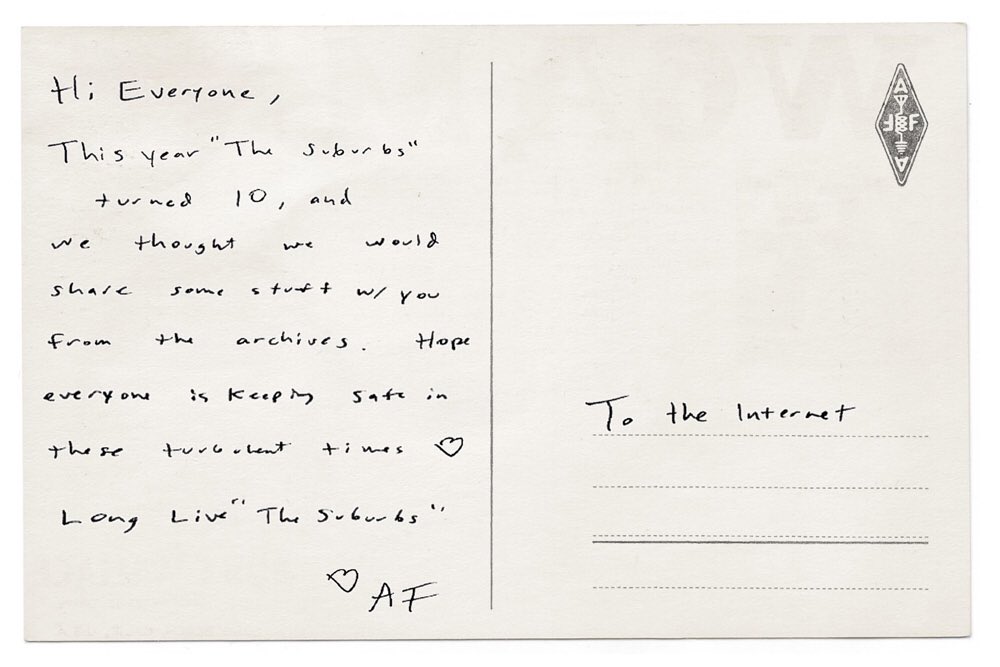 Hi Everyone,
This year "The Suburbs"
turned 10, and
we thought we would
share some stuff w/ you
from the archives. Hope
everyone is keeping safe in
these turbulent times ♡
Long Live "The Suburbs"
♡ AF
To the Internet